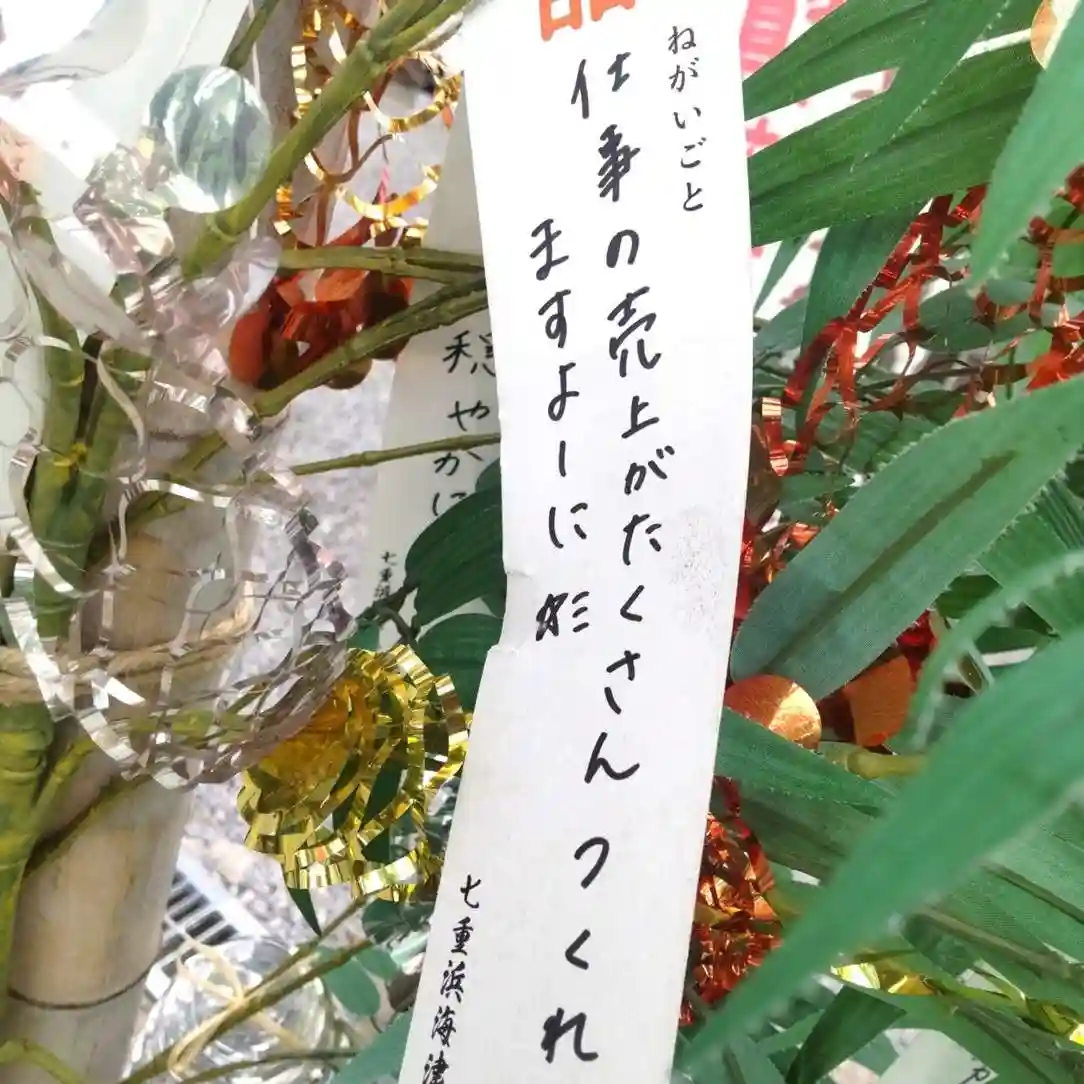 ねがいごと
仕事の売上がたくさんつくれ
ますよーに
七重浜海津
穏やかに
七重浜